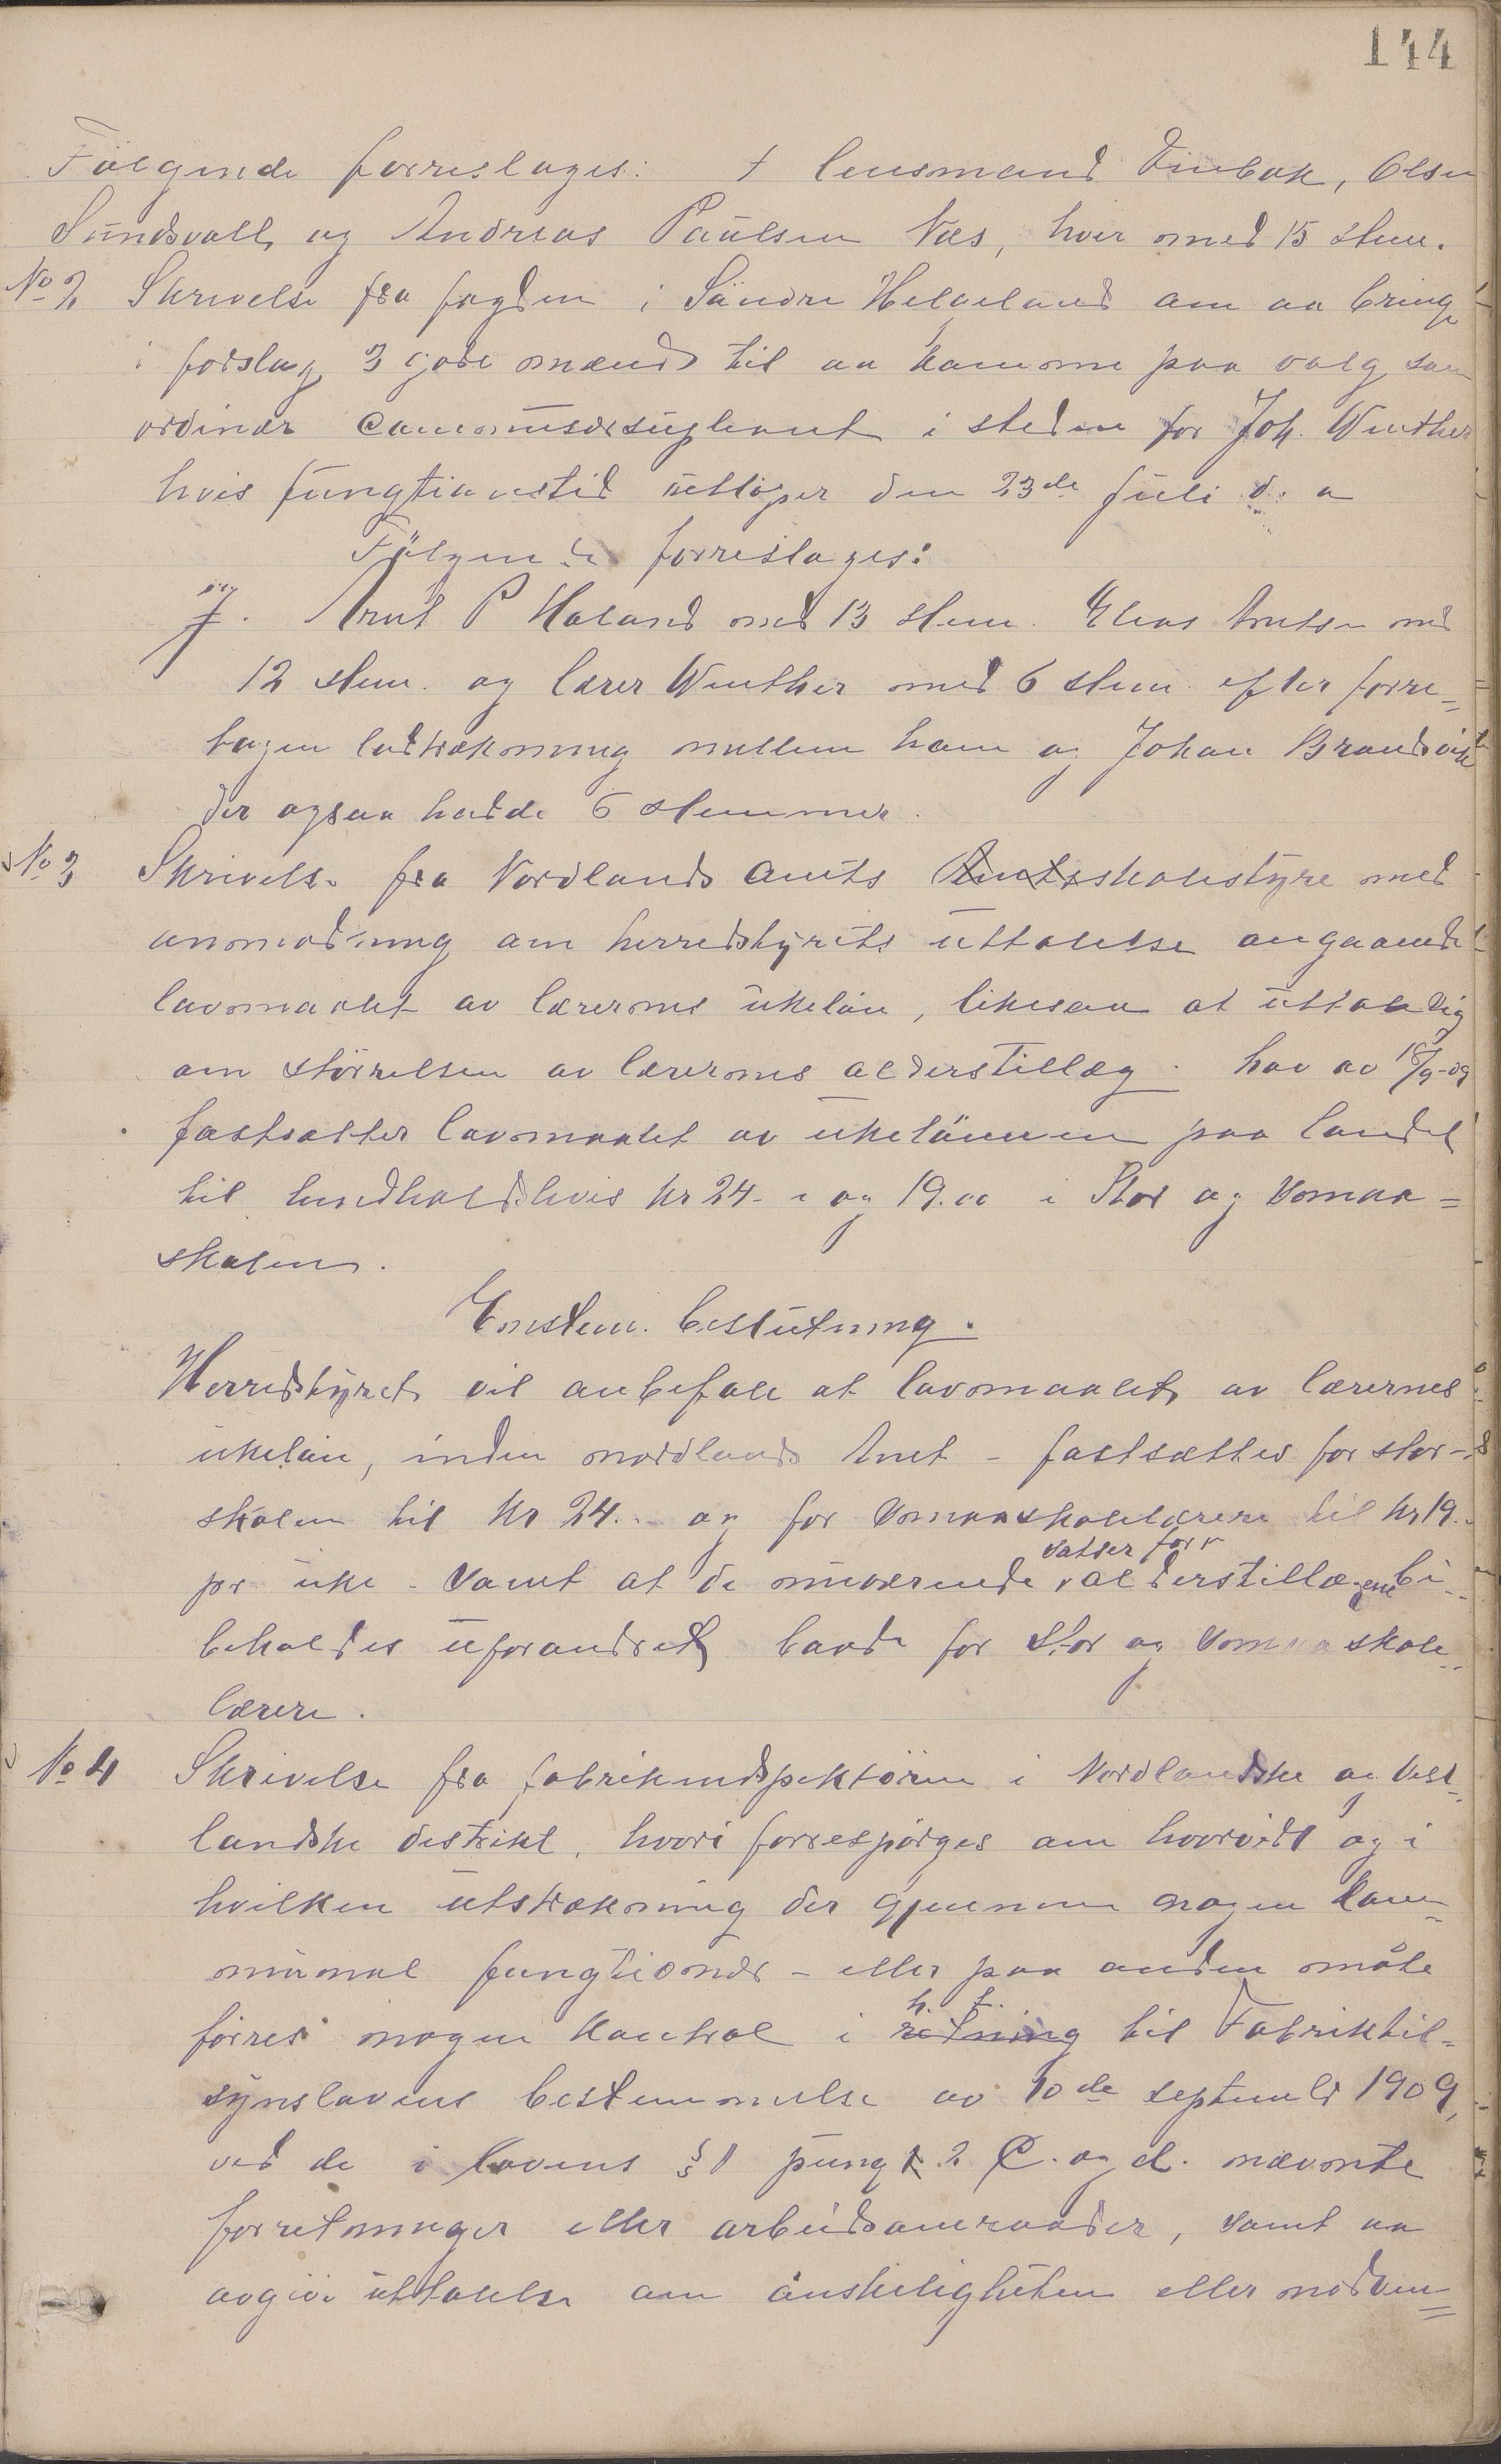 144
Følgende forreslages: lensmand Vinbak, Olsen
Sundsvoll og Andreas Paulsen Næs, hver med 15 stem.
No 2 Skrivelse fra fogden i Søndre Helgeland om aa bringe
i forslag 3 gode mænd til aa komme paa valg som
ordinær commisærsupleant i steden for Joh. Winther
hvis fungtionstid utløper den 23de juli d. a
Følgende forreslages:
Arnt P Haland med 13 stem. Elias Arntsen med
12 stem. og lærer Winther med 6 stem. efter forre-
tagen lodtrækning mellem ham og Johan Brandsvik
der ogsaa hadde 6 stemmer.
No 3 Skrivelse fra Nordlands amts Amtsskolestyre med
anmodning om herredstyrets uttalelse angaaende
lavmaalet av lærernes ukeløn, likesaa at uttale sig
om størrelsen av lærernes alderstillæg. Lov av 18/9-09
fastsætter lavmaalet av ukelønnen paa landet
til henholdsvis kr 24.- og 19.00 i Stor og Smaa=
skolen.
Enstem. beslutning.
Herredstyret vil anbefale at lavmaalet av lærernes
ukeløn, inden nordlands Amt - fastsættes for stor-
skolen til kr 24.. og for Smaaskolelærere til kr 19..
satser for
pr uke - Samt at de nuværende alderstillægene bi-
beholdes uforandret baade for Stor og Smaaskole-
lærere.
No 4 Skrivelse fra fabrikindspektøren i Nordlandske og Vest-
landske distrikt, hvori forrespørges om hvorvidt og i
hvilken utstrækning der gjennem nogen kom-
munal fungtionær - eller paa anden måte
h. t.
førres nogen kontrol i retning til Fabriktil-
synslovens bestemmelse av 10de septembr 1909,
ved de i lovens § 1 pungt 2 C. og d. nævnte
forretninger eller arbeidsomraader, samt aa
avgive uttalelse om ønskeligheten eller nødven=